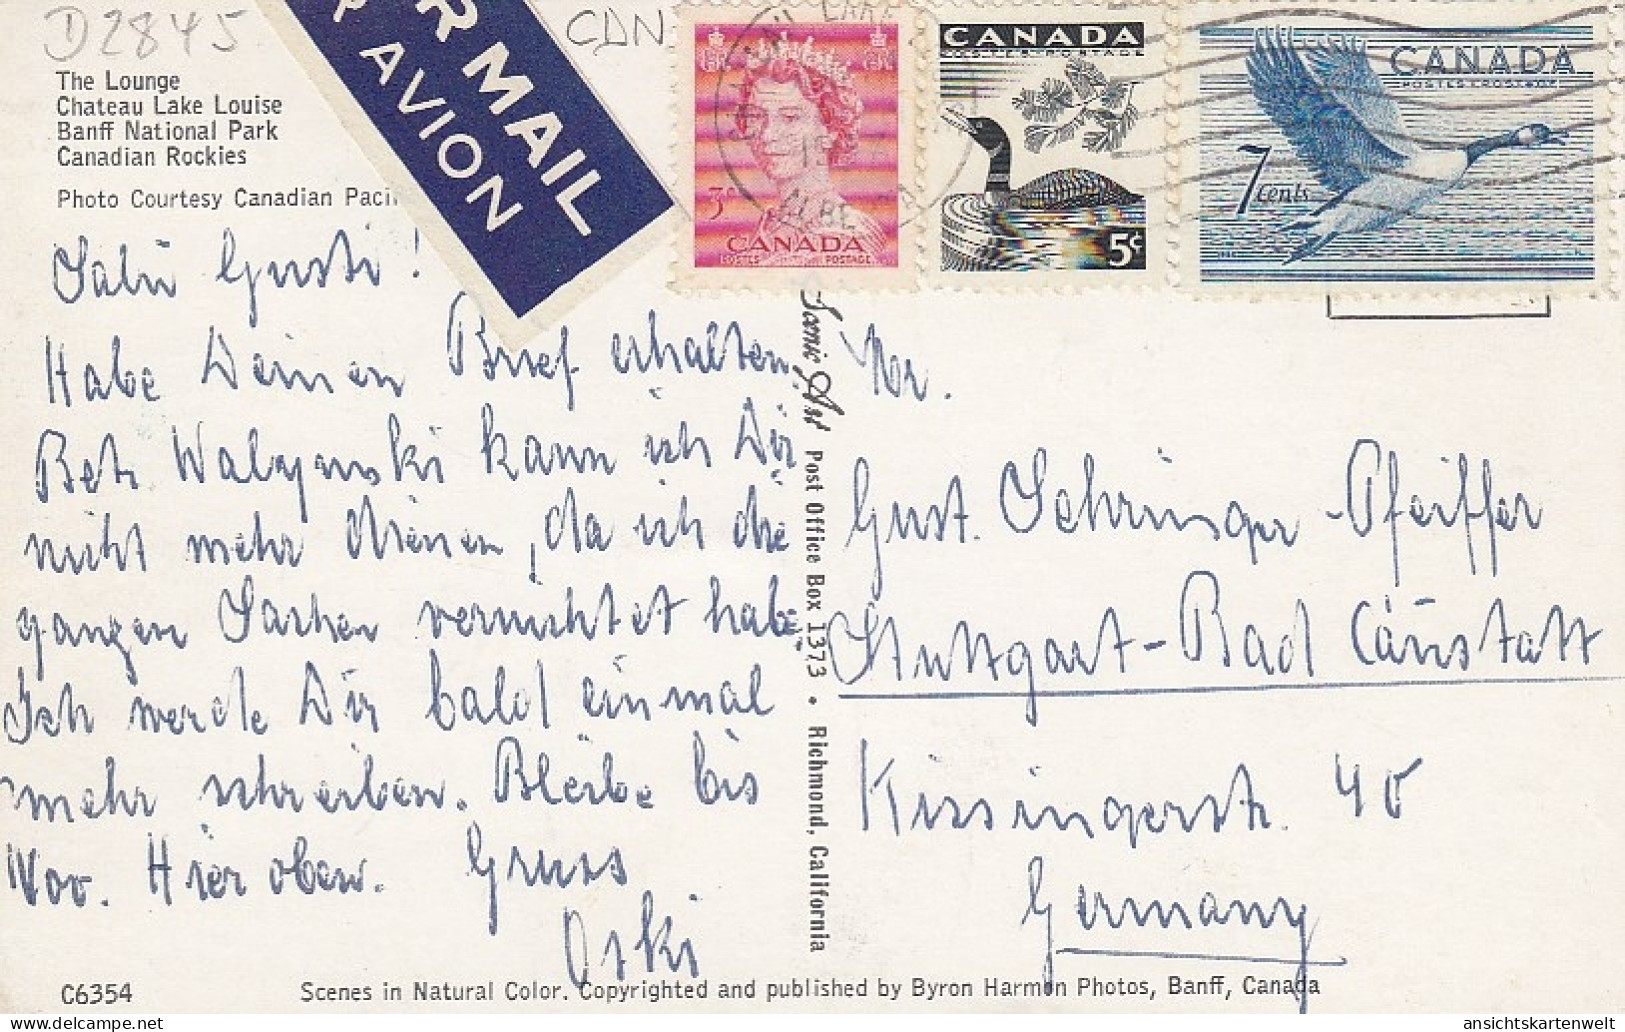 D2845
CDN
AIR MAIL
PAR AVION
The Lounge
Chateau Lake Louise
Banff National Park
Canadian Rockies
Photo Courtesy Canadian Pacif
CANADA
POSTES POSTAGE
CANADA
POSTES POSTAGE
5¢
CANADA
POSTES POSTAGE
7 cents
Salü Gusti!
Habe Deinen Brief erhalten.
Betr. Walynski kann ich Dir
nicht mehr dienen, da ich die
ganzen Sachen vernichtet habe.
Ich werde Dir bald einmal
mehr schreiben. Bleibe bis
Nov. Hier oben. Gruss
Oski
Scenic Art Post Office Box 1373 • Richmond, California
Hr.
Gust. Schringer-Pfeiffer
Stuttgart-Bad Cannstatt
Kissingerstr. 40
Germany
C6354
Scenes in Natural Color. Copyrighted and published by Byron Harmon Photos, Banff, Canada
ansichtskartenwelt